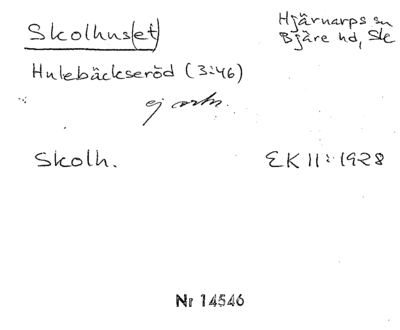 Skolhus(et)
Hjärnarps sn
Bjäre hd, Sk
Hulebäckseröd (3:46)
ej
Skolh.
EK 11: 1928
Nr 14546